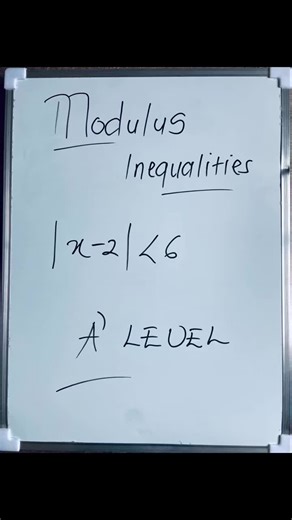 Modulus
Inequalities
|x-2|<6
A' LEVEL